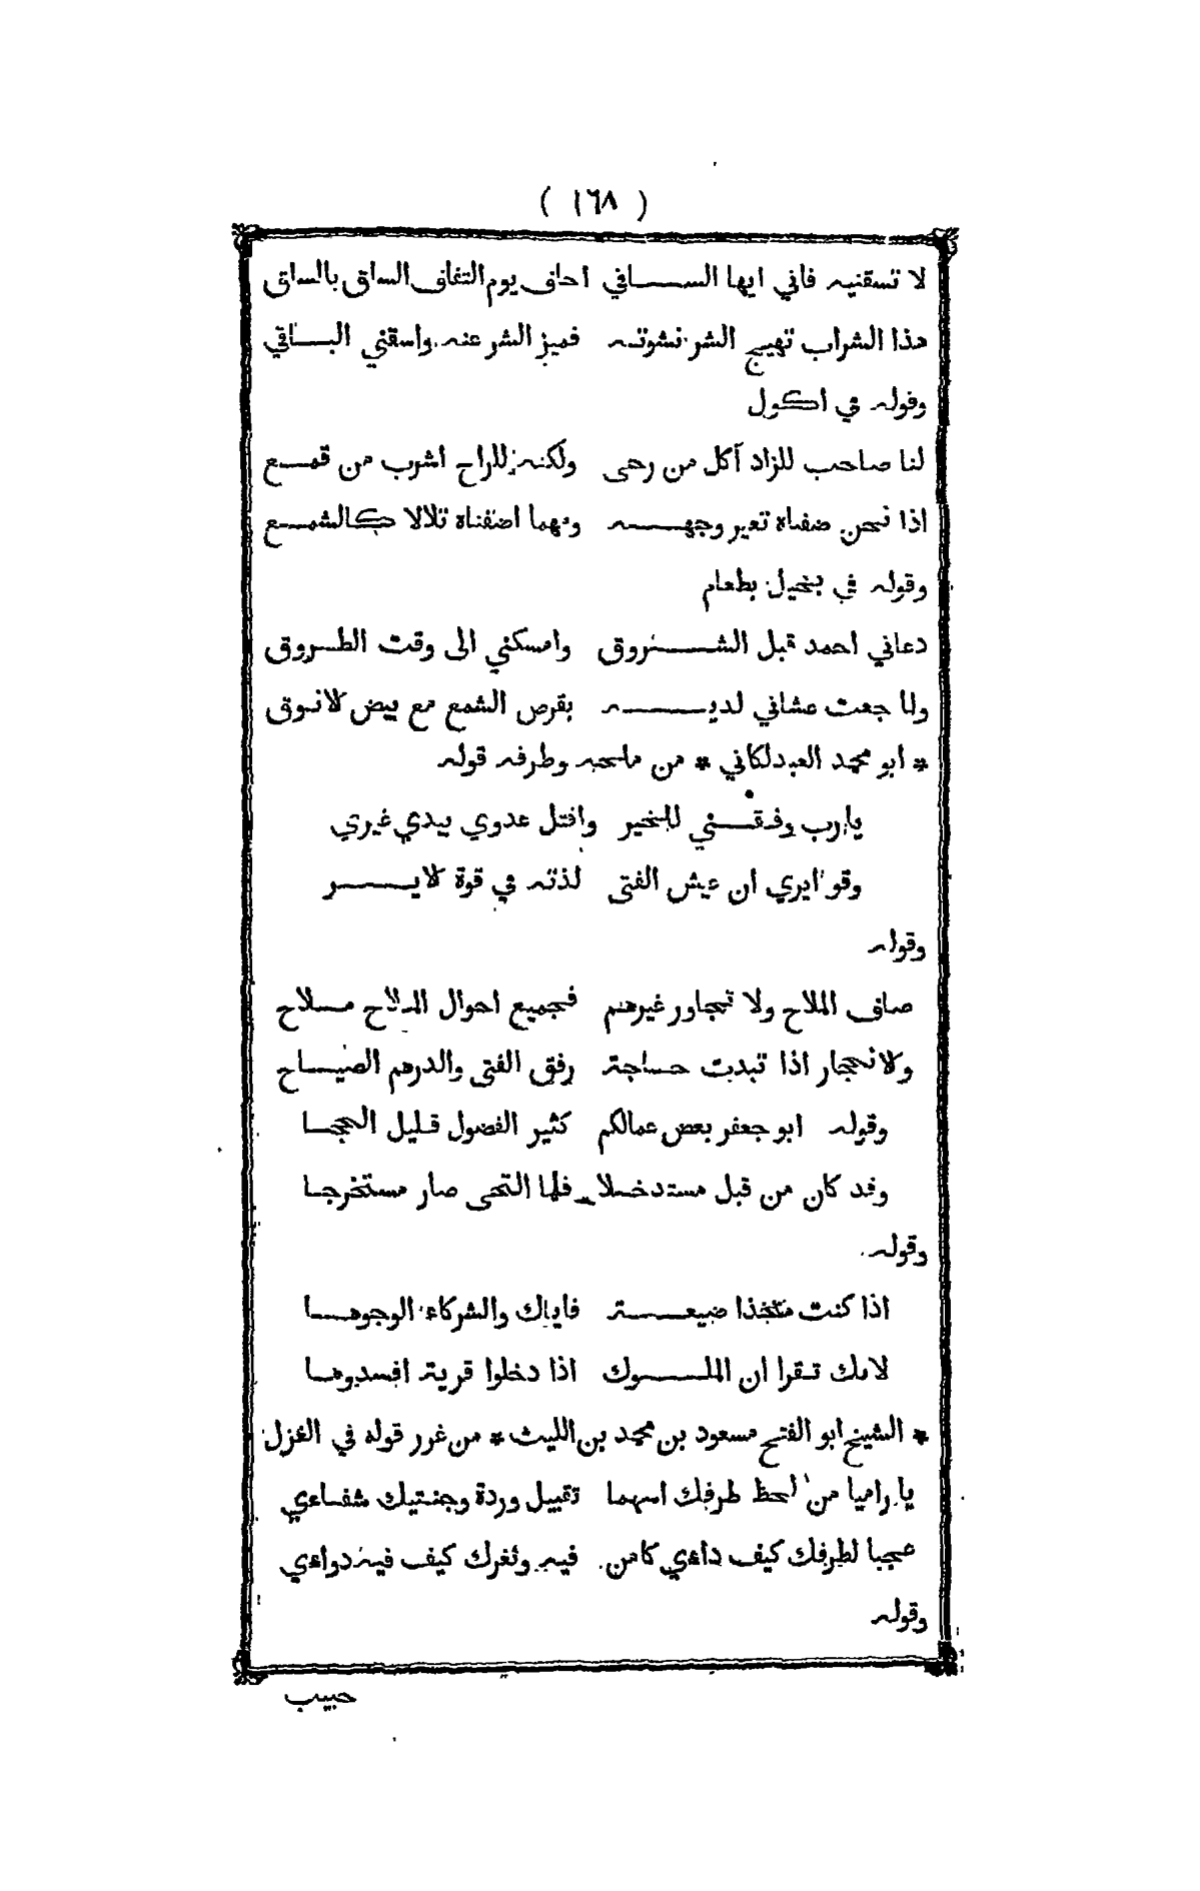 ( ١٦٨ )
لا تسقنيه فاني ايها الساقي اخاف يوم التفاف الساق بالساق
هذا الشراب تهيج الشر نشوته فميز الشر عنه واسقني الباقي
وقوله في اكول
لنا صاحب للزاد آكل من رحى ولكنه للراح اشرب من قمع
اذا نحن ضفناه تغير وجهه ومهما اضفناه تلالا كالشمع
وقوله في بخيل بطعام
دعاني احمد قبل الشروق وامسكني الى وقت الطروق
ولما جعت عشاني لديه بقرص الشمع مع بيض لانوق
* ابو محمد العبدلكاني * من ملحه وطرفه قوله
يا رب وفقني للخير واقتل عدوي بيدي غيري
وقو ايري ان عيش الفتى لذته في قوة لاير
وقوله
صاف الملاح ولا تجاور غيرهم فجميع احوال الملاح ملاح
ولانحجار اذا تبدت حاجة رفق الفتى والدرهم الصياح
وقوله ابو جعفر بعض عمالكم كثير الفضول قليل الحجا
وقد كان من قبل مستدخلا فلما التحى صار مستخرجا
وقوله
اذا كنت متخذا ضيعة فاياك والشركاء الوجوها
لامك تقرا ان الملوك اذا دخلوا قرية افسدوها
* الشيخ ابو الفتح مسعود بن محمد بن الليث * من غرر قوله في الغزل
يا راميا من لحظ طرفك اسهما تقبيل وردة وجنتيك شفاءي
عجبا لطرفك كيف داءي كامن فيه وثغرك كيف فيه دواءي
وقوله
حبيب